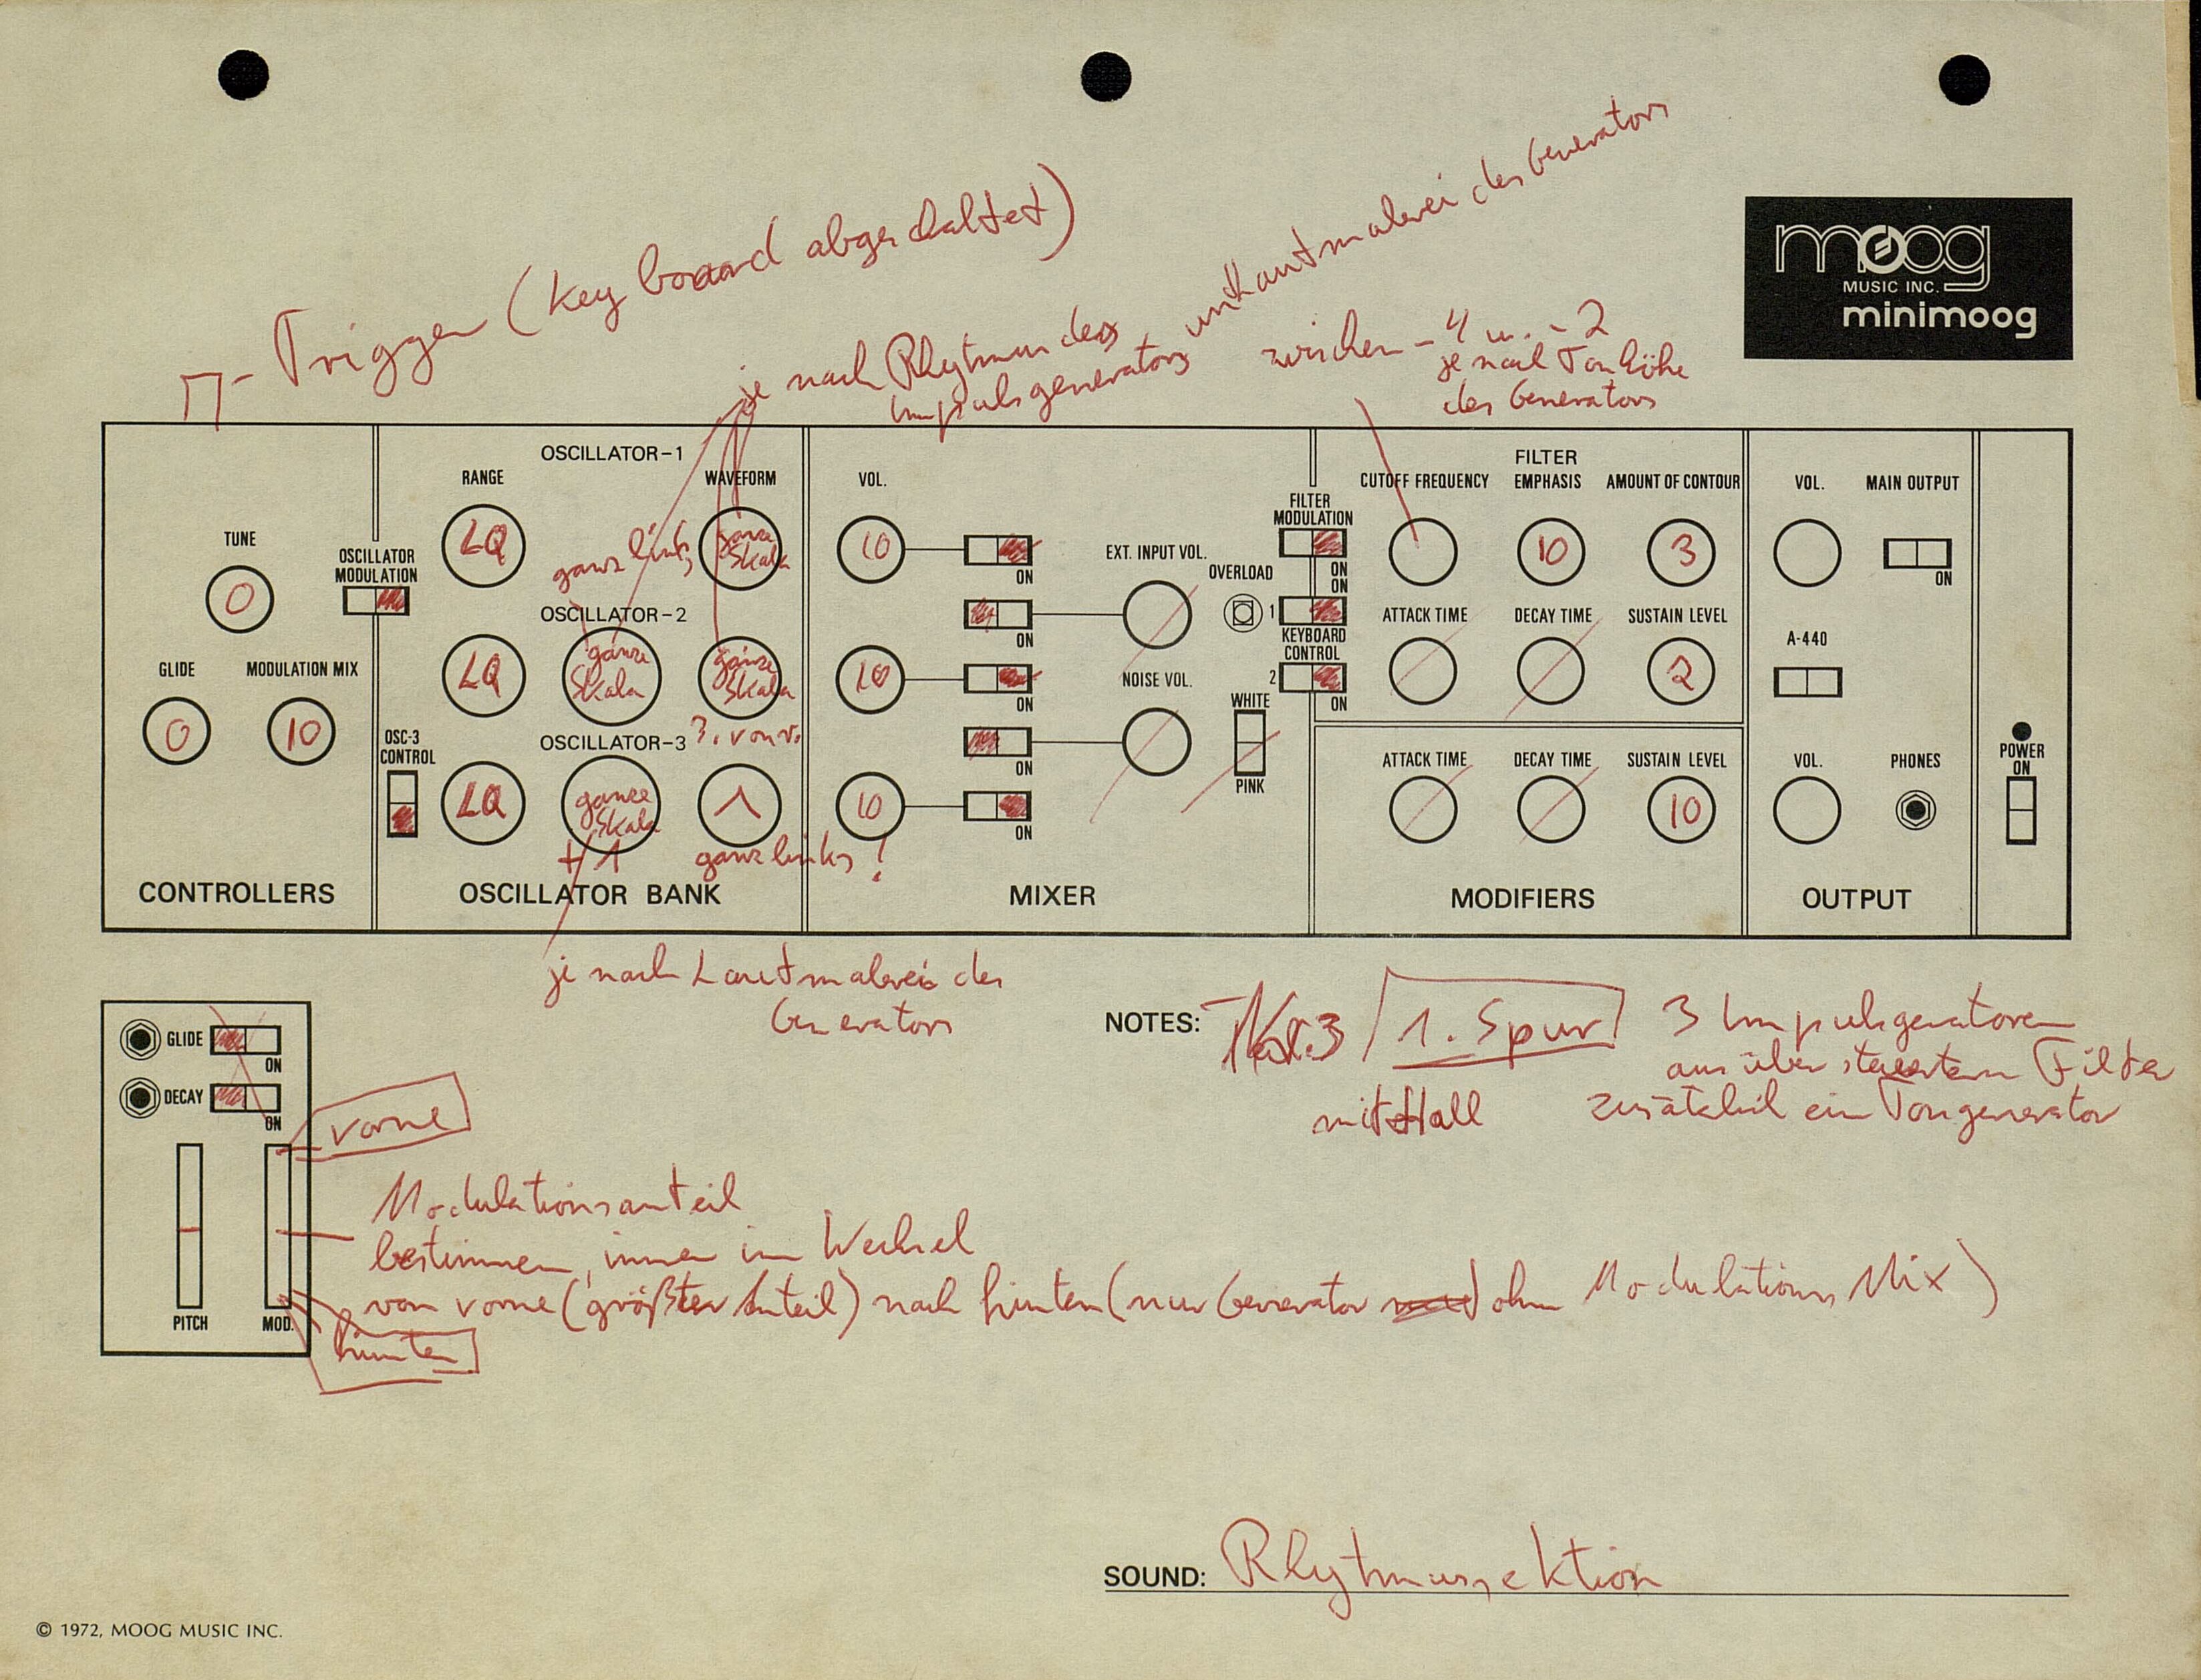 Trigger (Keyboard abgeschaltet)
je nach Rhytmus des
Impulsgenerators und Lautmalerei des Generators
zwischen -4 u. -2
je nach Tonhöhe
des Generators
moog
MUSIC INC.
minimoog
OSCILLATOR-1
RANGE
WAVEFORM
VOL.
FILTER
CUTOFF FREQUENCY
EMPHASIS
AMOUNT OF CONTOUR
VOL.
MAIN OUTPUT
FILTER
MODULATION
TUNE
0
OSCILLATOR
MODULATION
LO
ganz links
ganze
Skala
10
ON
EXT. INPUT VOL.
OVERLOAD
ON
ON
10
3
ON
OSCILLATOR-2
ON
1
KEYBOARD
CONTROL
ATTACK TIME
DECAY TIME
SUSTAIN LEVEL
A-440
GLIDE
MODULATION MIX
0
10
LO
ganze
Skala
ganze
Skala
10
ON
NOISE VOL.
2
ON
2
WHITE
PINK
OSC-3
CONTROL
OSCILLATOR-3
3. von r.
ON
ATTACK TIME
DECAY TIME
SUSTAIN LEVEL
VOL.
PHONES
POWER
ON
LO
ganze
Skala
+1
ganz links!
10
ON
10
CONTROLLERS
OSCILLATOR BANK
MIXER
MODIFIERS
OUTPUT
je nach Lautmalerei des
Generators
GLIDE
ON
DECAY
ON
PITCH
MOD.
vorne
hinten
NOTES:
1. Spur
mit Hall
3 Impulsgeneratoren
aus übersteuertem Filter
zusätzlich ein Tongenerator
Modulationsanteil
bestimmen, immer im Wechsel
von vorne (größter Anteil) nach hinten (nur Generator ohne Modulations Mix)
SOUND: Rhytmussektion
© 1972, MOOG MUSIC INC.